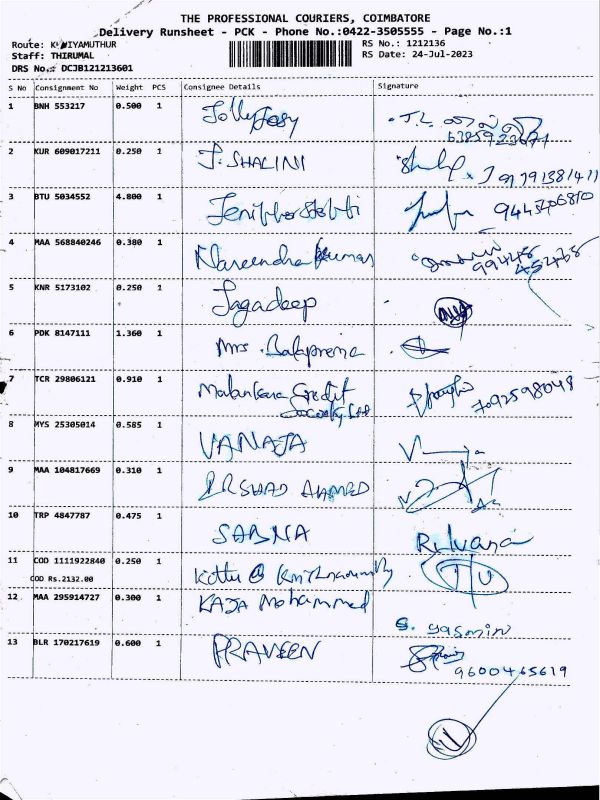 THE PROFESSIONAL COURIERS, COIMBATORE
Delivery Runsheet - PCK - Phone No.:0422-3505555 - Page No.:1
Route: IYAMUTHUR RS No.: 1212136
Staff: THIRUMAL RS Date: 24-Jul-2023
DRS No.: DCJB121213601
S No Consignment No Weight PCS Consignee Details Signature
1 BNH 553217 0.500 1 Jolly Josy
2 KUR 609017211 0.250 1 J. SHALINI
3 BTU 5034552 4.800 1
4 MAA 568840246 0.380 1 Nareendra Kumar
99448
45268
5 KNR 5173102 0.250 1 Jagadeep
6 PDK 8147111 1.360 1 Mrs. Balaprema
7 TCR 29806121 0.910 1 Malankara Credit
Society Ltd 7092598048
8 MYS 25305014 0.585 1 VANAJA
9 MAA 104817669 0.310 1 IRSHAD AHAMED
10 TRP 4847787 0.475 1 SABNA
11 COD 1111922840 0.250 1
COD Rs.2132.00
12 MAA 295914727 0.300 1 KAJA Mohammed S. yasmin
13 BLR 170217619 0.600 1 PRAVEEN
9600465619